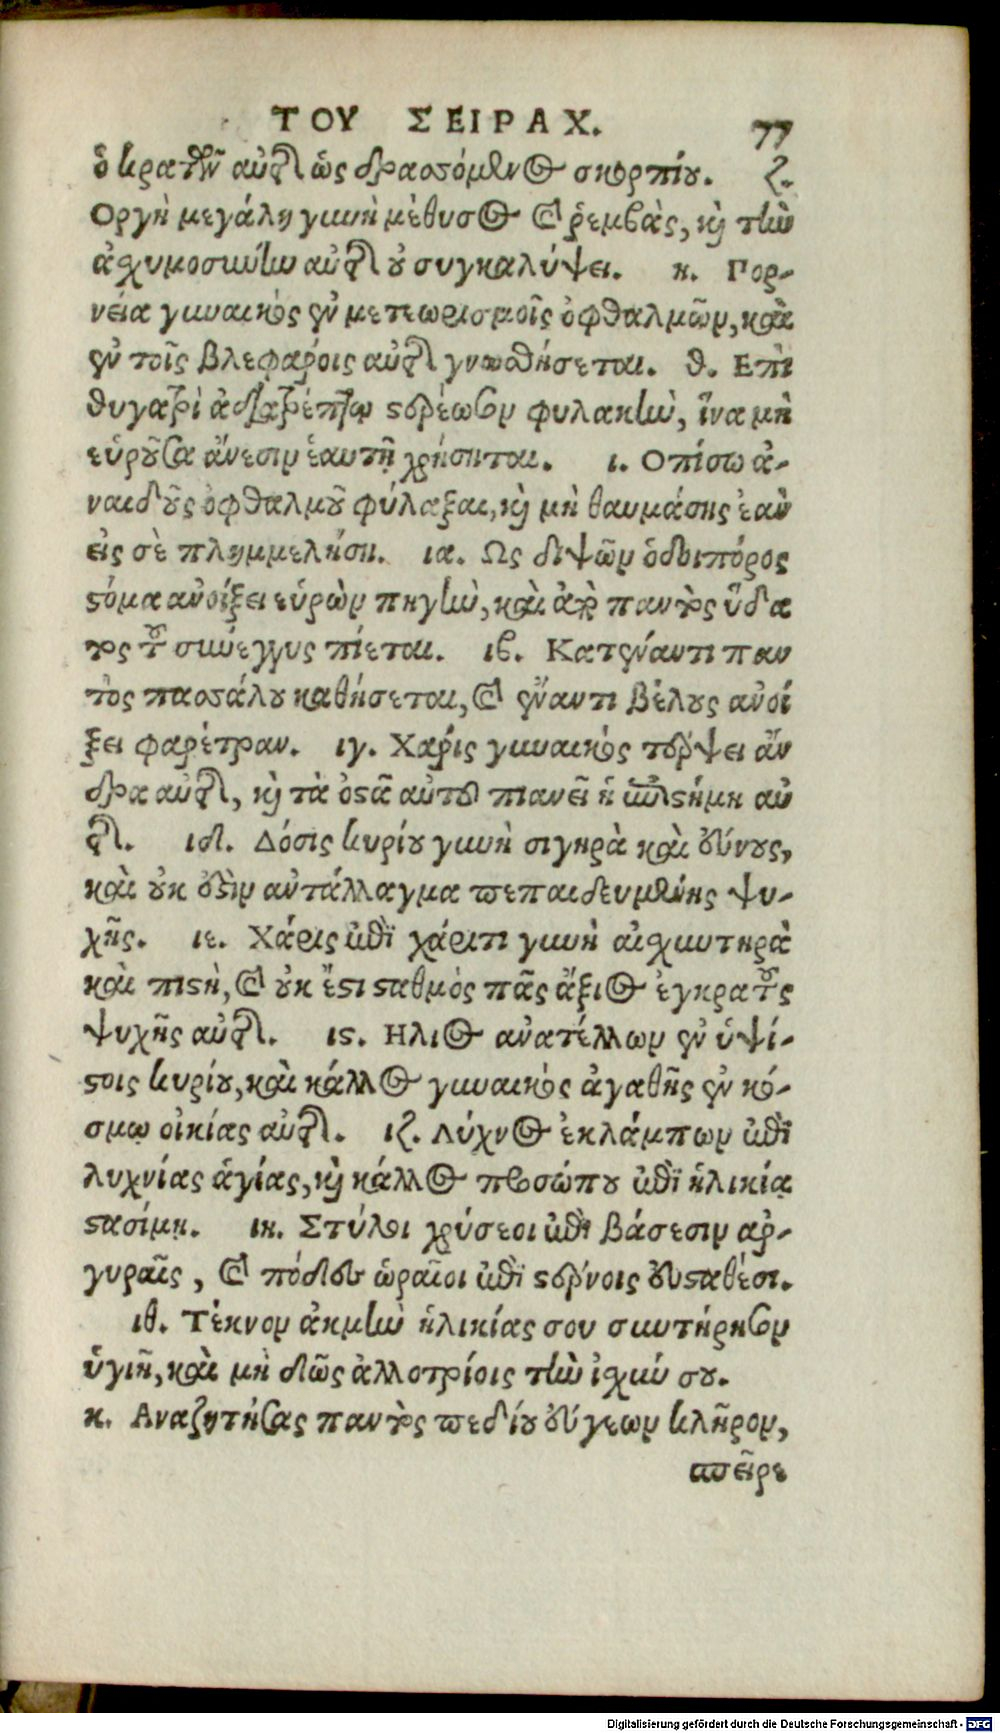 ΤΟΥ ΣΕΙΡΑΧ. 77
ὁ κρατῶν αὐτῆς ὡς δρασσόμενος σκορπίου. ζ.
Οργὴ μεγάλη γυνὴ μέθυσος καὶ ῥεμβὰς, καὶ τὴν
ἀσχημοσύνην αὐτῆς οὐ συγκαλύψει. η. Πορ-
νεία γυναικὸς ἐν μετεωρισμοῖς ὀφθαλμῶν, καὶ
ἐν τοῖς βλεφάροις αὐτῆς γνωσθήσεται. θ. Επὶ
θυγατρὶ ἀδιατρέπτῳ στερέωσον φυλακὴν, ἵνα μὴ
εὑροῦσα ἄνεσιν ἑαυτῇ χρήσηται. ι. Οπίσω ἀ-
ναιδοῦς ὀφθαλμοῦ φύλαξαι, καὶ μὴ θαυμάσης ἐὰν
εἰς σὲ πλημμελήση. ια. Ως διψῶν ὁδοιπόρος
στόμα ἀνοίξει εὑρὼν πηγὴν, καὶ ἀπὸ παντὸς ὕδα
τος τοῦ σύνεγγυς πίεται. ιβ. Κατέναντι παν
τὸς πασσάλου καθήσεται, καὶ ἔναντι βέλους ἀνοί
ξει φαρέτραν. ιγ. Χάρις γυναικὸς τέρψει ἄν
δρα αὐτῆς, καὶ τὰ ὀστᾶ αὐτοῦ πιανεῖ ἡ ἐπιστήμη αὐ
τῆς. ιδ. Δόσις κυρίου γυνὴ σιγηρὰ καὶ εὔνους,
καὶ οὐκ ἔστιν ἀντάλλαγμα πεπαιδευμένης ψυ-
χῆς. ιε. Χάρις ἐπὶ χάριτι γυνὴ αἰσχυντηρὰ
καὶ πιστὴ, καὶ οὐκ ἔστι σταθμὸς πᾶς ἄξιος ἐγκρατοῦς
ψυχῆς αὐτῆς. ις. Ηλιος ἀνατέλλων ἐν ὑψί-
στοις κυρίου, καὶ κάλλος γυναικὸς ἀγαθῆς ἐν κό-
σμῳ οἰκίας αὐτῆς. ιζ. Λύχνος ἐκλάμπων ἐπὶ
λυχνίας ἁγίας, καὶ κάλλος προσώπου ἐπὶ ἡλικίᾳ
στασίμῃ. ιη. Στύλοι χρύσεοι ἐπὶ βάσεσιν ἀρ-
γυραῖς, καὶ πόδες ὡραῖοι ἐπὶ στέρνοις εὐσταθέσι.
ιθ. Τέκνον ἀκμὴν ἡλικίας σου συντήρησον
ὑγιῆ, καὶ μὴ δῶς ἀλλοτρίοις τὴν ἰσχύν σου.
κ. Αναζητήσας παντὸς πεδίου εὔγεων κλῆρον,
σπεῖρε
Digitalisierung gefördert durch die Deutsche Forschungsgemeinschaft - DFG